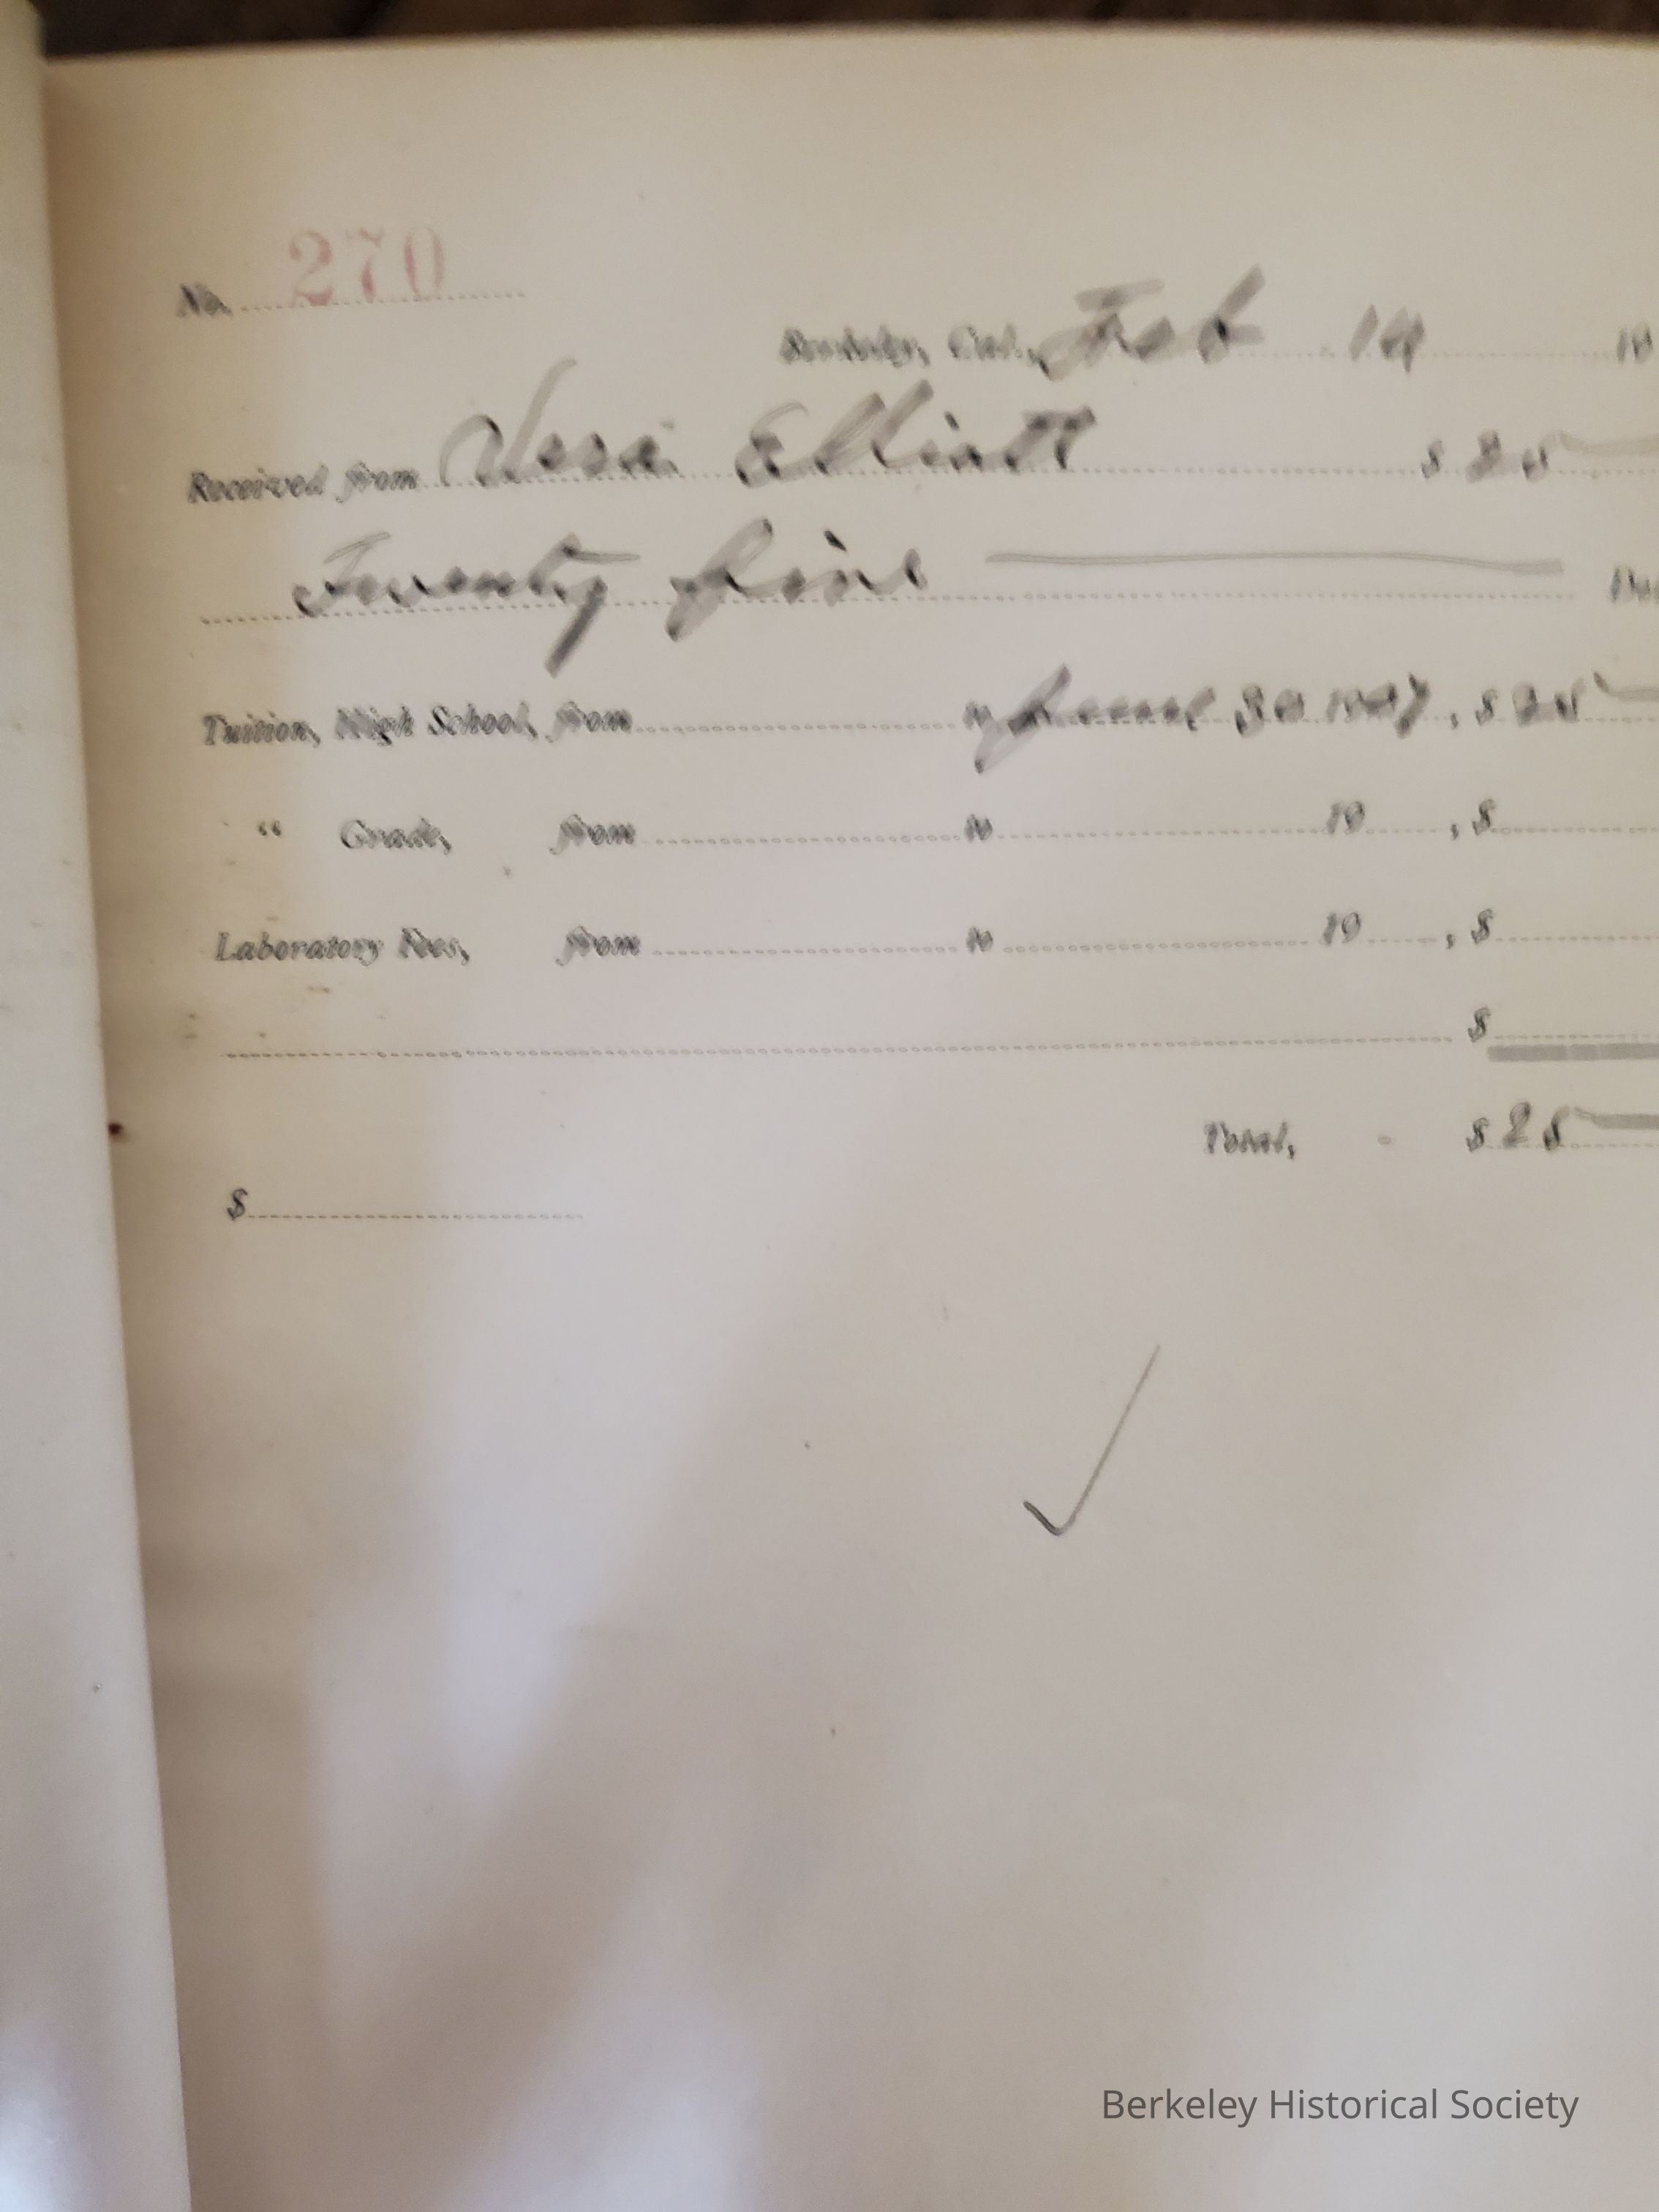 No. 270
Berkeley, Cal., Feb 14 19
Received from Vera Elliott $ 25
Twenty five
Tuition, High School, from to June 30 1907, $ 25
" Grade, from to 19 , $
Laboratory Fees, from to 19 , $
$
Total, - $ 25
$
Berkeley Historical Society